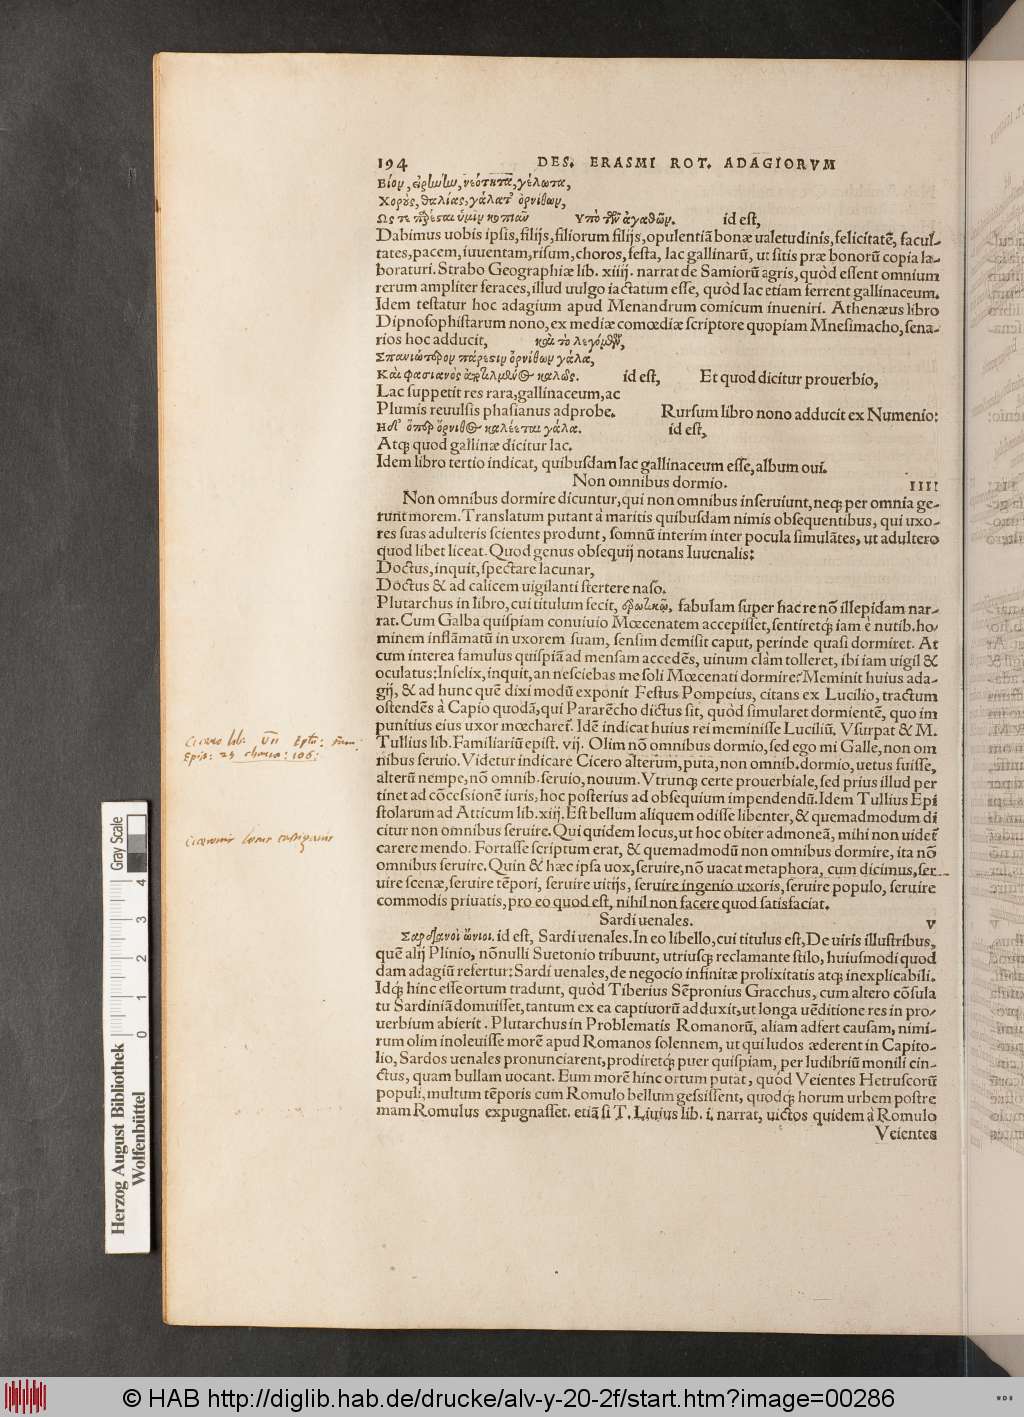 194 DES. ERASMI ROT. ADAGIORVM
Βίον, εἰρήνην, νεότητα, γέλωτα,
Χορούς, θαλίας, γάλα τ' ὀρνίθων,
Ὡς τε
Ὑπὸ τῶν ἀγαθῶν. id est,
Dabimus uobis ipsis, filijs, filiorum filijs, opulentiã bonæ ualetudinis, felicitatẽ, facul-
tates, pacem, iuuentam, risum, choros, festa, lac gallinarũ, ut sitis præ bonorũ copia la-
boraturi. Strabo Geographiæ lib. xiiij. narrat de Samiorũ agris, quòd essent omnium
rerum ampliter feraces, illud uulgo iactatum esse, quòd lac etiam ferrent gallinaceum.
Idem testatur hoc adagium apud Menandrum comicum inueniri. Athenæus libro
Dipnosophistarum nono, ex mediæ comœdiæ scriptore quopiam Mnesimacho, sena-
rios hoc adducit, καὶ το λεγόμενον,
Σπανιώτερον πάρεστιν ὀρνίθων γάλα,
Καὶ φασιανὸς ἀποτετιλμένος καλῶς. id est, Et quod dicitur prouerbio,
Lac suppetit res rara, gallinaceum, ac
Plumis reuulsis phasianus adprobe. Rursum libro nono adducit ex Numenio:
ὄρνιθος καλέεται γάλα. id est,
Atq; quod gallinæ dicitur lac.
Idem libro tertio indicat, quibusdam lac gallinaceum esse, album oui.
Non omnibus dormio. IIII
Non omnibus dormire dicuntur, qui non omnibus inseruiunt, neq; per omnia ge-
runt morem. Translatum putant à maritis quibusdam nimis obsequentibus, qui uxo-
res suas adulteris scientes produnt, somnũ interim inter pocula simulãtes, ut adultero
quod libet liceat. Quod genus obsequij notans Iuuenalis:
Doctus, inquit, spectare lacunar,
Doctus & ad calicem uigilanti stertere naso.
Plutarchus in libro, cui titulum fecit, ἐρωτικῷ, fabulam super hac re nõ illepidam nar-
rat. Cum Galba quispiam conuiuio Mœcenatem accepisset, sentiretq; iam è nutib. ho-
minem inflãmatũ in uxorem suam, sensim demisit caput, perinde quasi dormiret. At
cum interea famulus quispiã ad mensam accedẽs, uinum clàm tolleret, ibi iam uigil &
oculatus: Infelix, inquit, an nesciebas me soli Mœcenati dormire? Meminit huius ada-
gij, & ad hunc quẽ dixi modũ exponit Festus Pompeius, citans ex Lucilio, tractum
ostendẽs à Capio quodã, qui Pararẽcho dictus sit, quòd simularet dormientẽ, quo im
punitius eius uxor mœcharet̃. Idẽ indicat huius rei meminisse Luciliũ. Vsurpat & M.
Tullius lib. Familiariũ epist. vij. Olim nõ omnibus dormio, sed ego mi Galle, non om
nibus seruio. Videtur indicare Cicero alterum, puta, non omnib. dormio, uetus fuisse,
alterũ nempe, nõ omnib. seruio, nouum. Vtrunq; certe prouerbiale, sed prius illud per
tinet ad cõcessionẽ iuris, hoc posterius ad obsequium impendendũ. Idem Tullius Epi
stolarum ad Atticum lib. xiij. Est bellum aliquem odisse libenter, & quemadmodum di
citur non omnibus seruire. Qui quidem locus, ut hoc obiter admoneã, mihi non uidet̃
carere mendo. Fortasse scriptum erat, & quemadmodũ non omnibus dormire, ita nõ
omnibus seruire. Quin & hæc ipsa uox, seruire, nõ uacat metaphora, cum dicimus, ser-
uire scenæ, seruire tẽpori, seruire uitijs, seruire ingenio uxoris, seruire populo, seruire
commodis priuatis, pro eo quod est, nihil non facere quod satisfaciat.
Sardi uenales. V
Σαρδιανοὶ ὤνιοι. id est, Sardi uenales. In eo libello, cui titulus est, De uiris illustribus,
quẽ alij Plinio, nõnulli Suetonio tribuunt, utriusq; reclamante stilo, huiusmodi quod
dam adagiũ refertur: Sardi uenales, de negocio infinitæ prolixitatis atq; inexplicabili.
Idq; hinc esse ortum tradunt, quòd Tiberius Sẽpronius Gracchus, cum altero cõsula
tu Sardiniã domuisset, tantum ex ea captiuorũ adduxit, ut longa uẽditione res in pro-
uerbium abierit. Plutarchus in Problematis Romanorũ, aliam adfert causam, nimi-
rum olim inoleuisse morẽ apud Romanos solennem, ut qui ludos æderent in Capito-
lio, Sardos uenales pronunciarent, prodiretq; puer quispiam, per ludibriũ monili cin-
ctus, quam bullam uocant. Eum morẽ hinc ortum putat, quòd Veientes Hetruscorũ
populi, multum tẽporis cum Romulo bellum gessissent, quodq; horum urbem postre
mam Romulus expugnasset. etiã si T. Liuius lib. i. narrat, uictos quidem à Romulo
Veientes
Cicero lib: VII Epła: fam:
Epis: 25 106:
Ciceronis locus
Gray Scale
0 1 2 3 4
Herzog August Bibliothek
Wolfenbüttel
© HAB http://diglib.hab.de/drucke/alv-y-20-2f/start.htm?image=00286